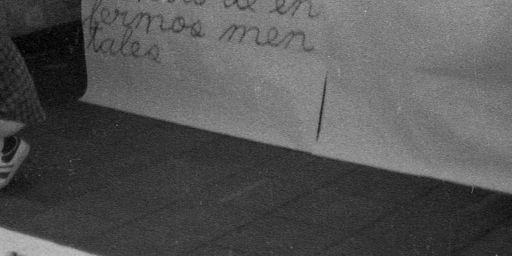 de en
fermos men
tales